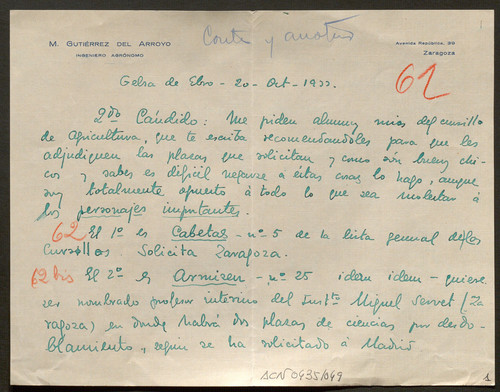 M. GUTIÉRREZ DEL ARROYO
INGENIERO AGRÓNOMO
Avenida República, 99
Zaragoza
61
Gelsa de Ebro - 20 - Oct - 1933.
Qdo Cándido: Me piden alumnos mios del cursillo
de Agricultura, que te escriba recomendandoles para que les
adjudiquen las plazas que solicitan y como son buenos chi-
cos y sabes es dificil negarse á éstas cosas lo hago, aunque
soy totalmente opuesto á todo lo que sea molestar á
los personajes importantes.
62 El 1º es Cabetas - nº 5 de la lista general de los
Cursillos Solicita Zaragoza.
62 bis El 2º es Armisen - nº 25 idem idem - quiere
ser nombrado profesor interino del Insto Miguel Servet (Za-
ragoza) en donde habrá dos plazas de ciencias por desdo-
blamiento, según se ha solicitado á Madrid
ACN0435/049
1